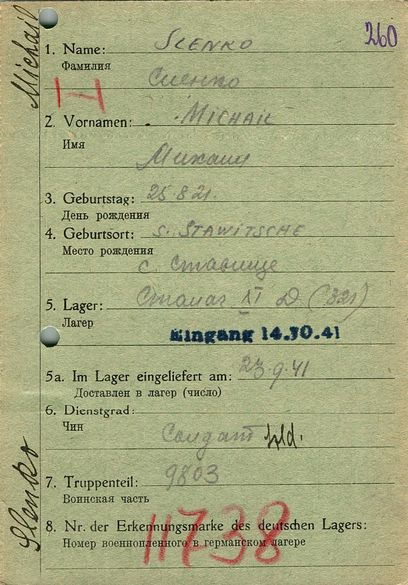 Michail
260
1. Name: SLENKO
Фамилия
Сленко
H
2. Vornamen: MICHAIL
Имя
Михаил
3. Geburtstag: 25 8 21.
День рождения
4. Geburtsort: S. STAWITSCHE
Место рождения
с. Ставище
5. Lager: Сталаг XI D (321)
Лагер
Eingang 14.10.41
5a. Im Lager eingeliefert am: 23.9.41
Доставлен в лагер (число)
6. Dienstgrad:
Чин
Солдат Sld.
7. Truppenteil: 9803
Воинская часть
8. Nr. der Erkennungsmarke des deutschen Lagers:
Номер военнопленного в германском лагере
11738
Slenko